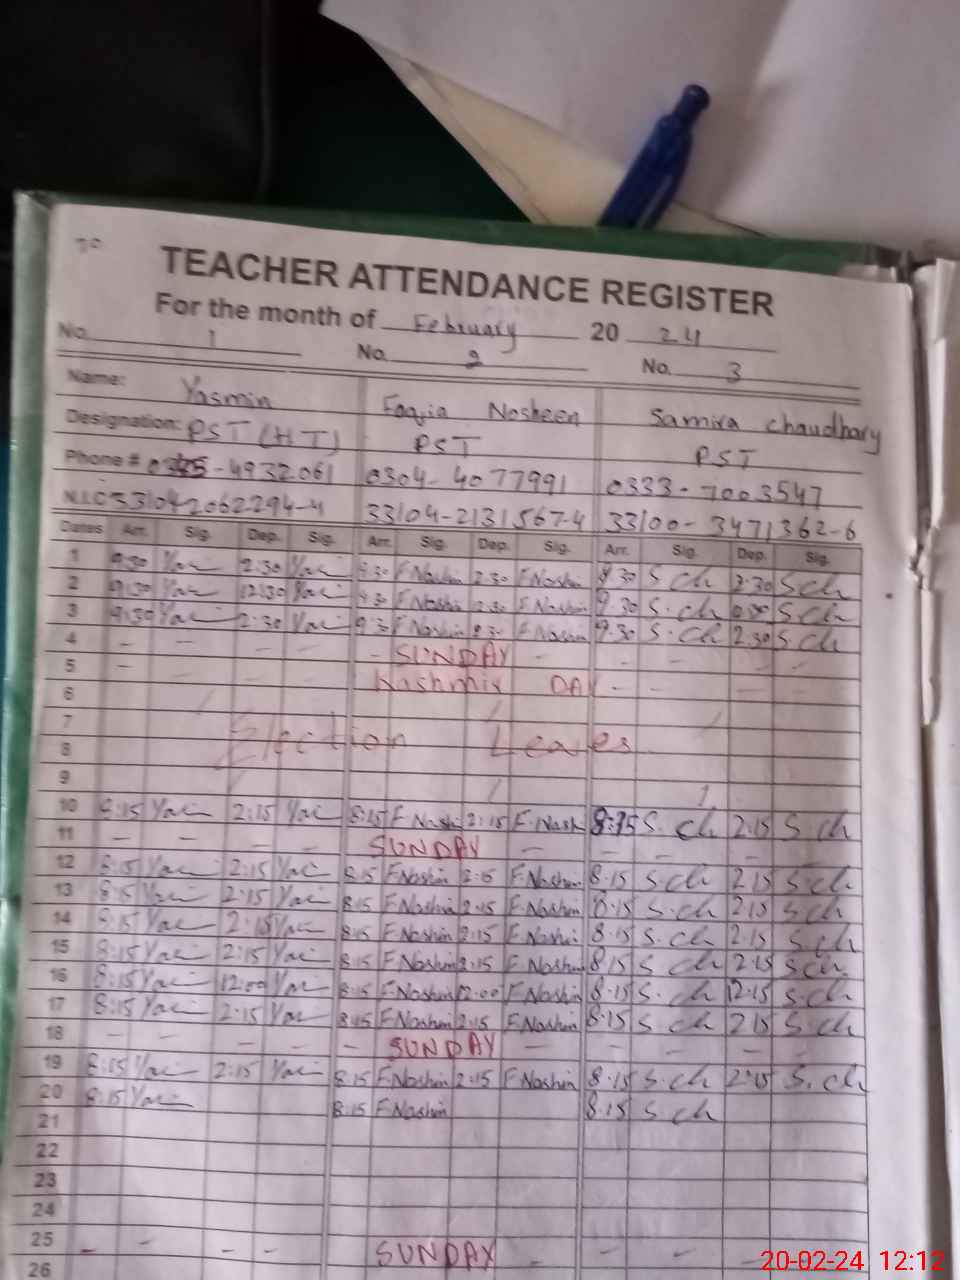 TEACHER ATTENDANCE REGISTER
For the month of February 2024
No. 1 No. 2 No. 3
Name: Yasmin Foqjia Nosheen Samira chaudhary
Designation: PST (HT) PST PST
Phone # 0345-4932061 0304-4077991 0333-7003547
N.I.C 331042062294-4 33104-2131567-4 33100-3471362-6
Dates Arr. Sig. Dep. Sig. Arr. Sig. Dep. Sig. Arr. Sig. Dep. Sig.
1 9:30 Yas 2:30 Yas 9:30 F.Noshin 2:30 F.Noshin 9.30 S ch 2:30 S ch
2 9:30 Yas 12:30 Yas 9:30 F.Noshin F.Noshin 9.30 S.ch S.ch
3 9:30 Yas 2:30 Yas 9:30 F.Noshin 2:30 F.Noshin 9.30 S.ch 2.30 S.ch
4 - - - - - SUNDAY - - - - -
5 - - - - Kashmir DAY - - - -
6
7
8 Election Leaves
9
10 8:15 Yas 2:15 Yas 8:15 F.Nosh 2:15 F.Nosh S.ch 2:15 S ch
11 - - - - SUNDAY - - - - -
12 8:15 Yas 2:15 Yas 8:15 F.Noshin 2:15 F.Noshin 8.15 S.ch 2.15 S.ch
13 8:15 Yas 2:15 Yas 8:15 F.Noshin 2:15 F.Noshin 8.15 S.ch 2.15 S ch
14 8:15 Yas 2:15 Yas 8:15 F.Noshin 2:15 F.Noshin 8.15 S.ch 2.15 S.ch
15 8:15 Yas 2:15 Yas 8:15 F.Noshin 2:15 F.Noshin 8.15 S ch 2.15 S ch.
16 8:15 Yas 12:00 Yas 8:15 F.Noshin 12:00 F.Noshin 8.15 S.ch 12.15 S.ch
17 8:15 Yas 2:15 Yas 8:15 F.Noshin 2:15 F.Noshin 8.15 S.ch 2.15 S.ch
18 - - - - - SUNDAY - - - - -
19 8:15 Yas 2:15 Yas 8:15 F.Noshin 2:15 F.Noshin 8.15 S.ch 2:15 S.ch
20 8:15 Yas 8:15 F.Noshin 8.15 S ch
21
22
23
24
25 - - - - SUNDAY - - - -
26
20-02-24 12:12